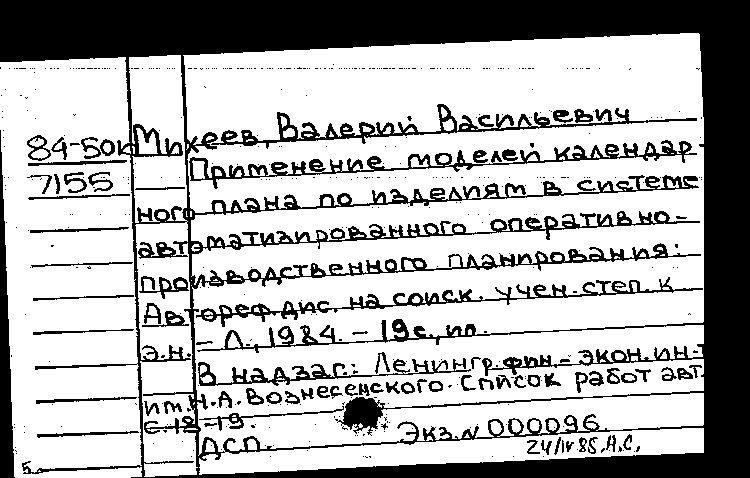 84-5ок Михеев, Валерий Васильевич
7155 Применение моделей календар-
ного плана по изделиям в системе
автоматизированного оперативно-
производственного планирования:
Автореф. дис. на соиск. учен. степ. к.
э.н. - Л., 1984. - 19с., ил.
В надзаг.: Ленингр. фин.- экон. ин-т
им. Н.А. Вознесенского. Список работ авт.
с. 18-19.
ДСП. Экз. N 000096.
24/IV 85. А.С.
5